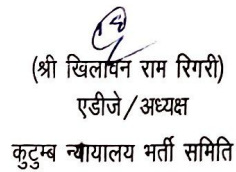 (श्री खिलावन राम रिगरी)
एडीजे/अध्यक्ष
कुटुम्ब न्यायालय भर्ती समिति